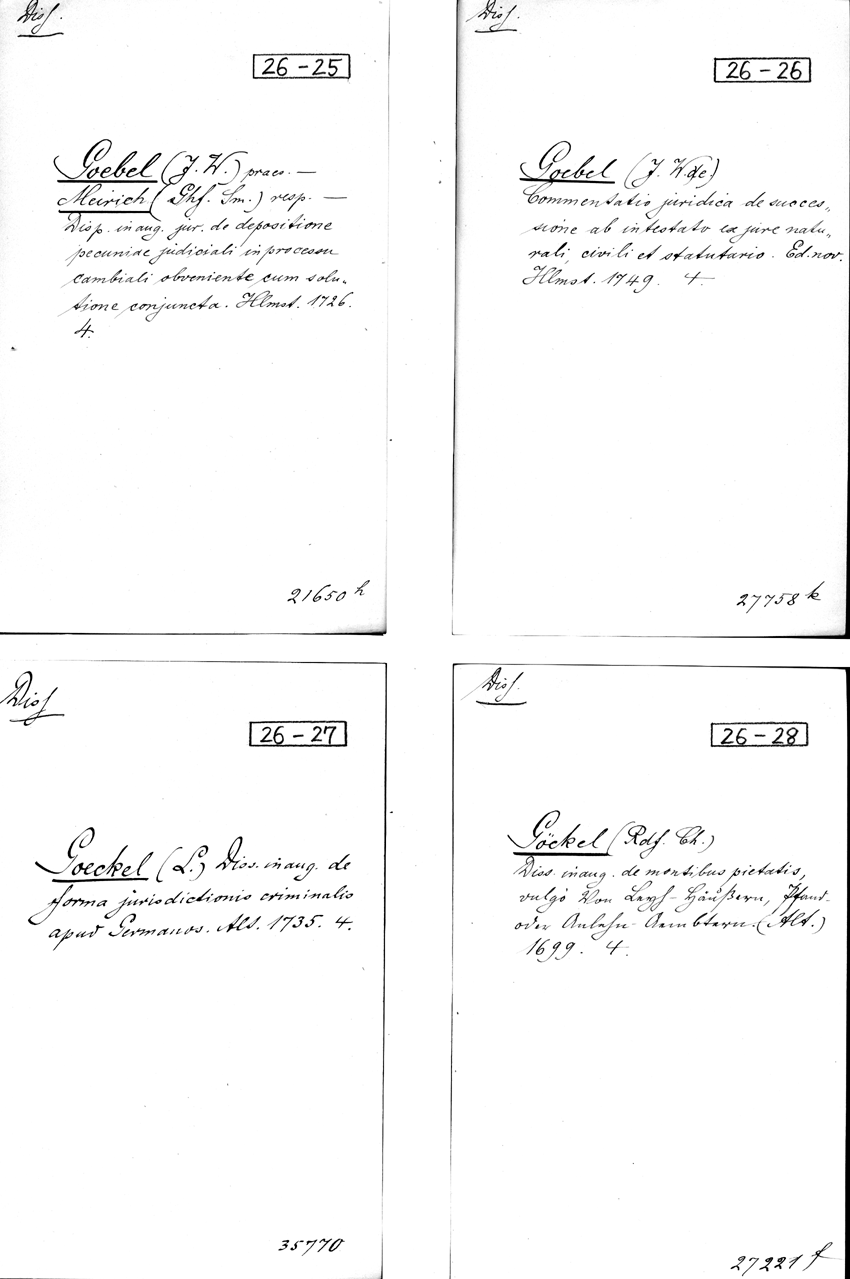 Diss.
26-25
Goebel (J. W.) praes. —
Meirich (Ghf. Sm.) resp. —
Disp. inaug. jur. de depositione
pecuniae judiciali in processu
cambiali obveniente cum solu-
tione conjuncta. Hlmst. 1726.
4.
21650 h
Diss.
26-26
Goebel (J. W. de)
Commentatio juridica de succes-
sione ab intestato ex jure natu-
rali, civili et statutario. Ed. nov.
Hlmst. 1749. 4.
27758 k
Diss
26-27
Goeckel (L.) Diss. inaug. de
forma jurisdictionis criminalis
apud Germanos. Alt. 1735. 4.
35770
Diss.
26-28
Göckel (Rdf. Ch.)
Diss. inaug. de montibus pietatis,
vulgò Von Leyh-Häußern, Pfand-
oder Anlehn-Aembtern. (Alt.)
1699. 4.
27221 f